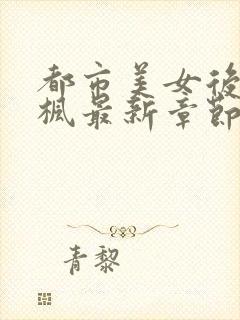 都市美女後
楓最新章節
青黎